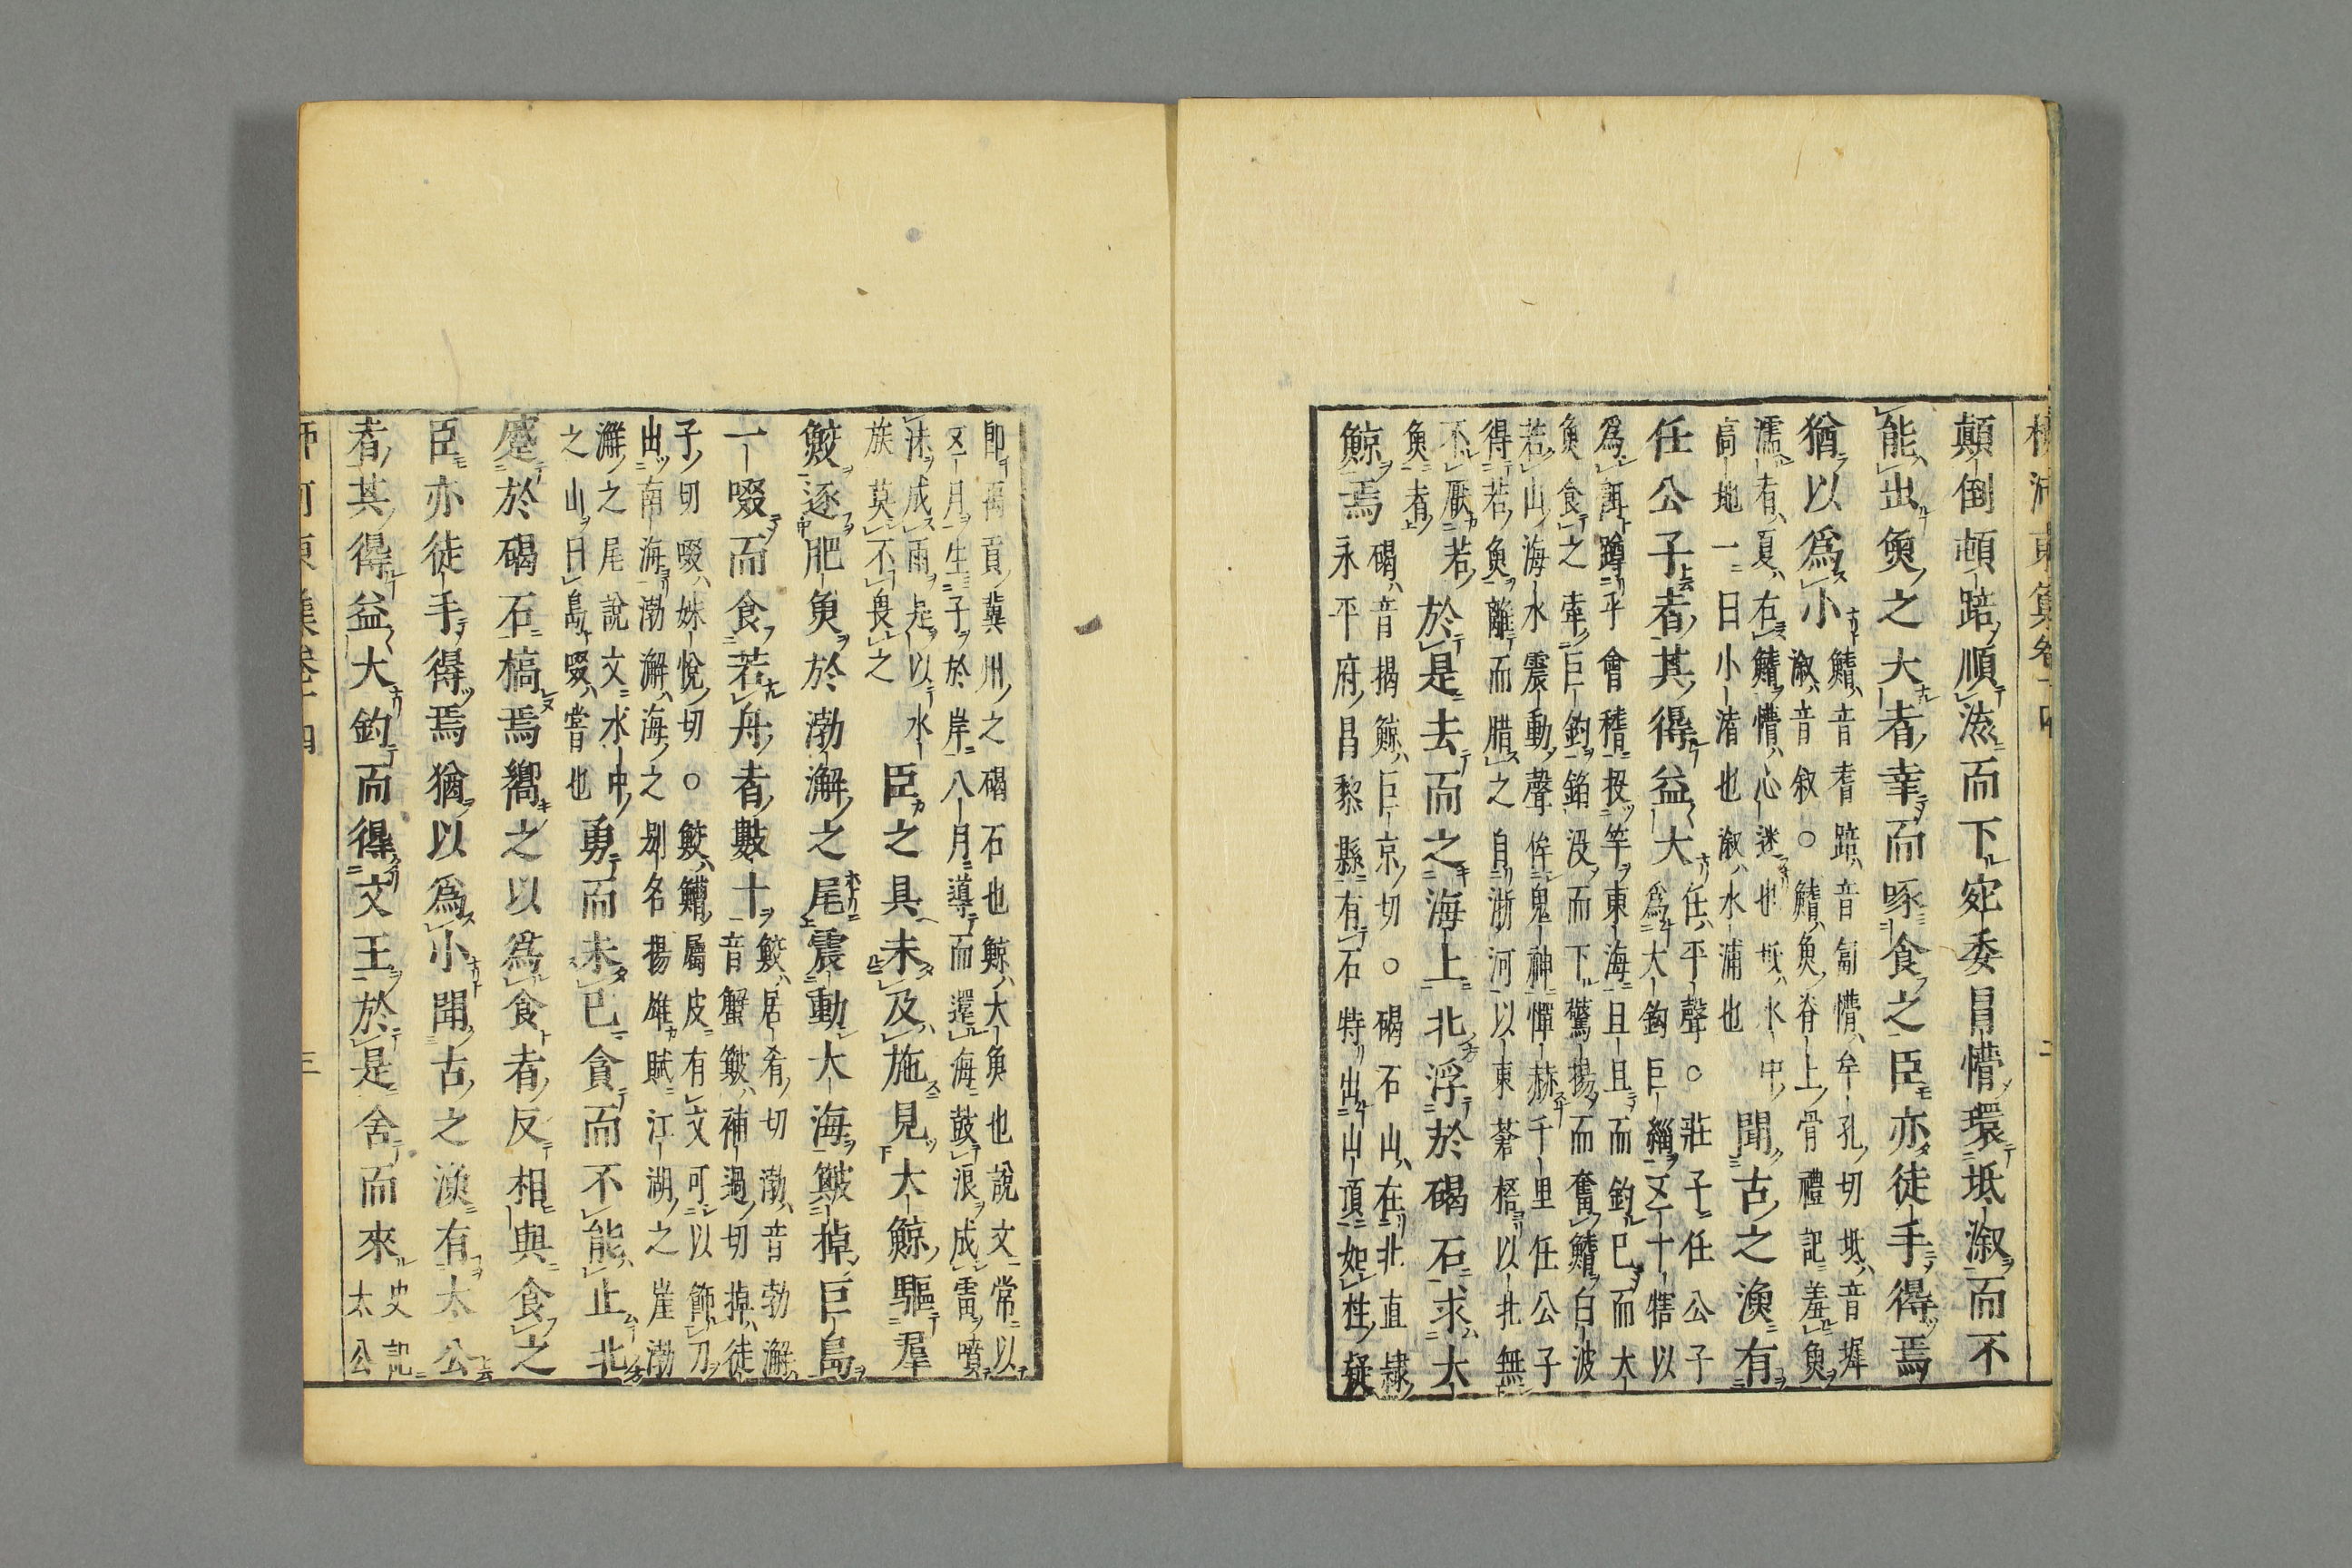 顛倒頓踣順流而下宛委冒懵環坻漵而不
能出魚之大者幸而啄食之臣亦徒手得焉
猶以爲小
鰭音耆踣音匐懵牟孔切坻音墀
漵音叙○鰭魚脊上骨禮記羞魚
濡者夏右鰭懵心迷也坻水中
高地一曰小渚也漵水浦也
聞古之漁有
任公子者其得益大
任平聲○莊子任公子
爲大鉤巨緇五十犗以
爲餌蹲乎會稽投竿東海旦旦而釣已而大
魚食之牽巨鉤錎沒而下驚揚而奮鰭白波
若山海水震動聲侔鬼神憚赫千里任公子
得若魚離而腊之自淛河以東蒼梧以北無
不厭若
魚者
於是去而之海上北浮於碣石求大
鯨焉
碣音揭鯨巨京切○碣石山在北直隸
永平府昌黎縣有石特出山頂如柱疑
即禹貢冀州之碣石也鯨大魚也說文常以
五月生子於岸八月導而還海鼓浪成雷噴
沫成雨是以水
族莫不畏之
臣之具未及施見大鯨驅羣
鮫逐肥魚於渤澥之尾震動大海簸掉巨島
一啜而食若舟者數十
鮫居肴切渤音勃澥
音蟹簸補過切掉徒
子切啜姝悅切○鮫鱝屬皮有文可以飾刀
出南海渤澥海之別名揚雄賦江湖之崖渤
澥之尾說文水中
之山曰島啜嘗也
勇而未已貪而不能止北
蹙於碣石槁焉嚮之以爲食者反相與食之
臣亦徒手得焉猶以爲小聞古之漁有太公
者其得益大釣而得文王於是舍而來
史記
太公